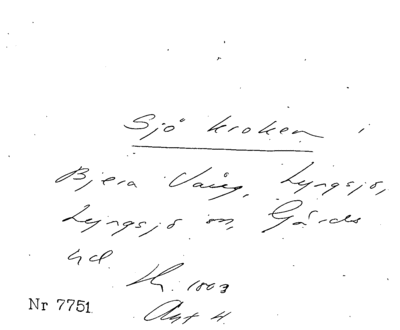 Sjö kroken i
Bjera Vång, Lyngsjö,
Lyngsjö sn, Gärds
hd.
Hr. 1803
Akt 4.
Nr 7751